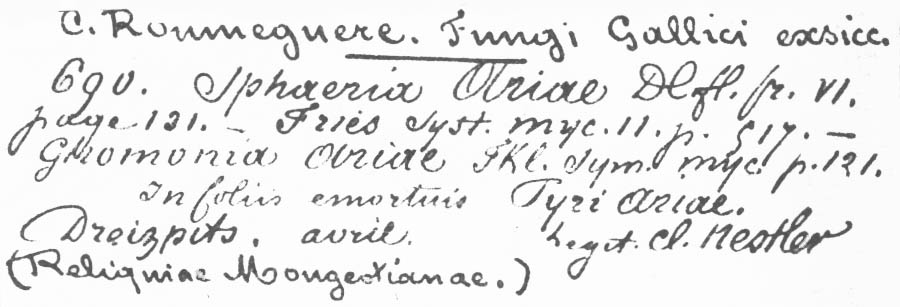 C. Roumeguere. Fungi Gallici exsicc.
690. Sphaeria Ariae DC fl. fr. VI.
page 131. — Fries Syst. myc. 11. p. 517. —
Gnomonia Ariae Fkl. Sym. myc. p. 121.
In foliis emortuis Pyri Ariae.
Dreizpits. avril. Legit. cl. Nestler
(Reliquiae Mougeotianae.)